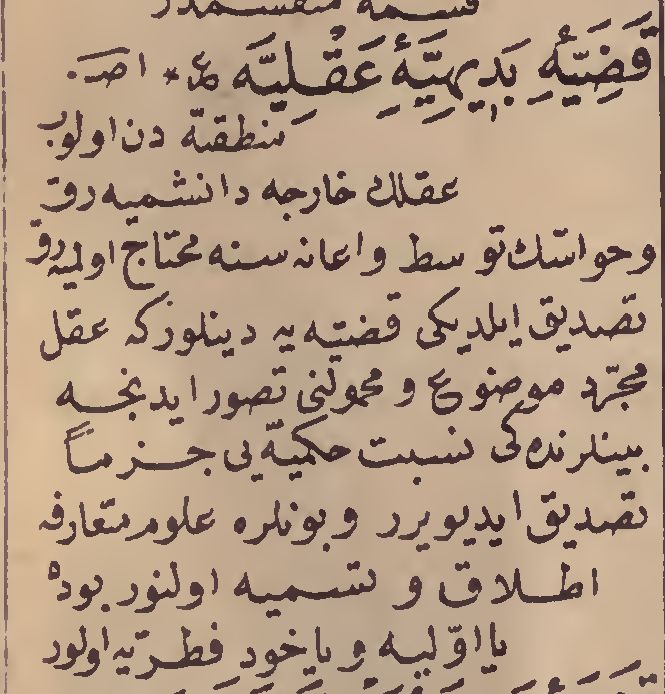 قسمه منقسمدر
قَضِيَّهٔ بَدِيهِيَّهٔ عَقْلِيَّه ع * اصـ .
منطقیه دن اولوب
عقلك خارجه دانشمیه رق
وحواسك توسط واعانه سنه محتاج اولمیه رق
تصدیق ایلدیکی قضیه یه دینلور که عقل
مجرّد موضوع و محمولنی تصور ایدنجه
بینلرنده کی نسبت حکمیّه یی جزماً
تصدیق ایدیویرر وبونلره علوم متعارفه
اطلاق و تسمیه اولنور بوده
یا اوّلیه و یاخود فطریّه اولور